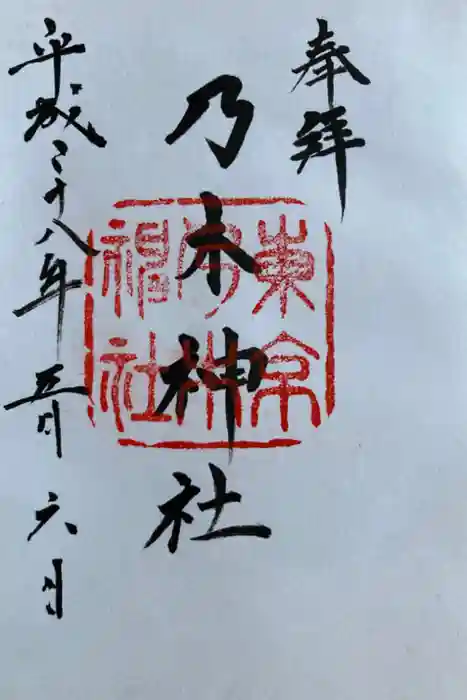 奉拝
乃木神社
東京
乃木
神社
平成二十八年五月六日